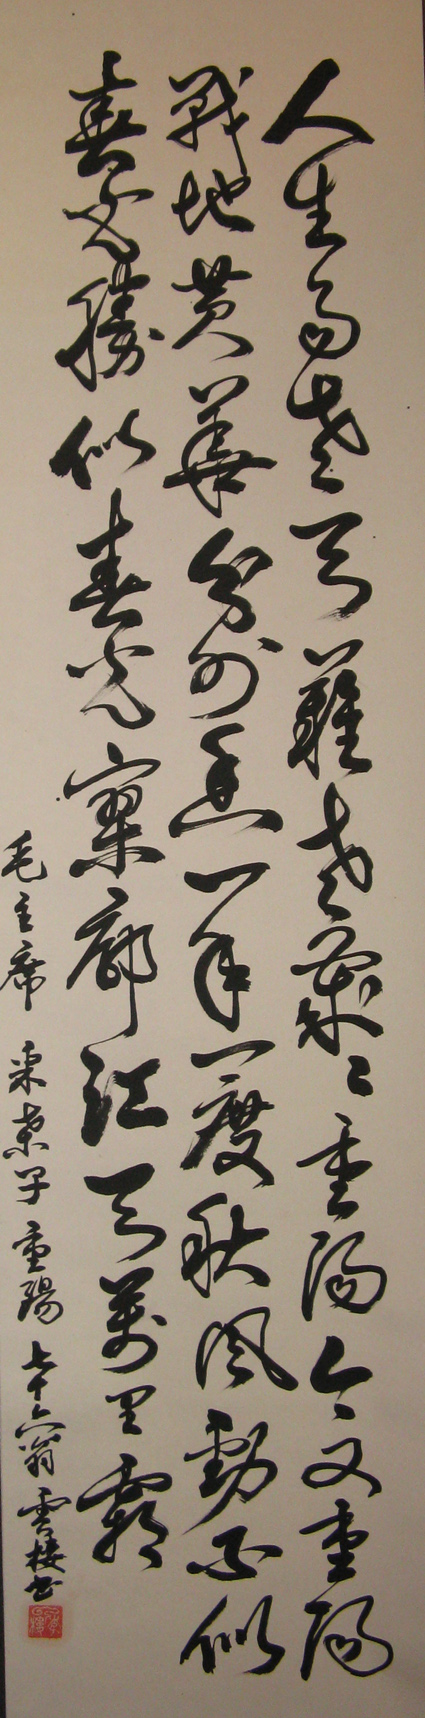 人生易老天難老歲々重陽今又重陽
戰地黄華分外香一年一度秋風勁不似
春光勝似春光寥廓江天萬里霜
毛主席 采桑子 重陽 七十六翁 雲楼書